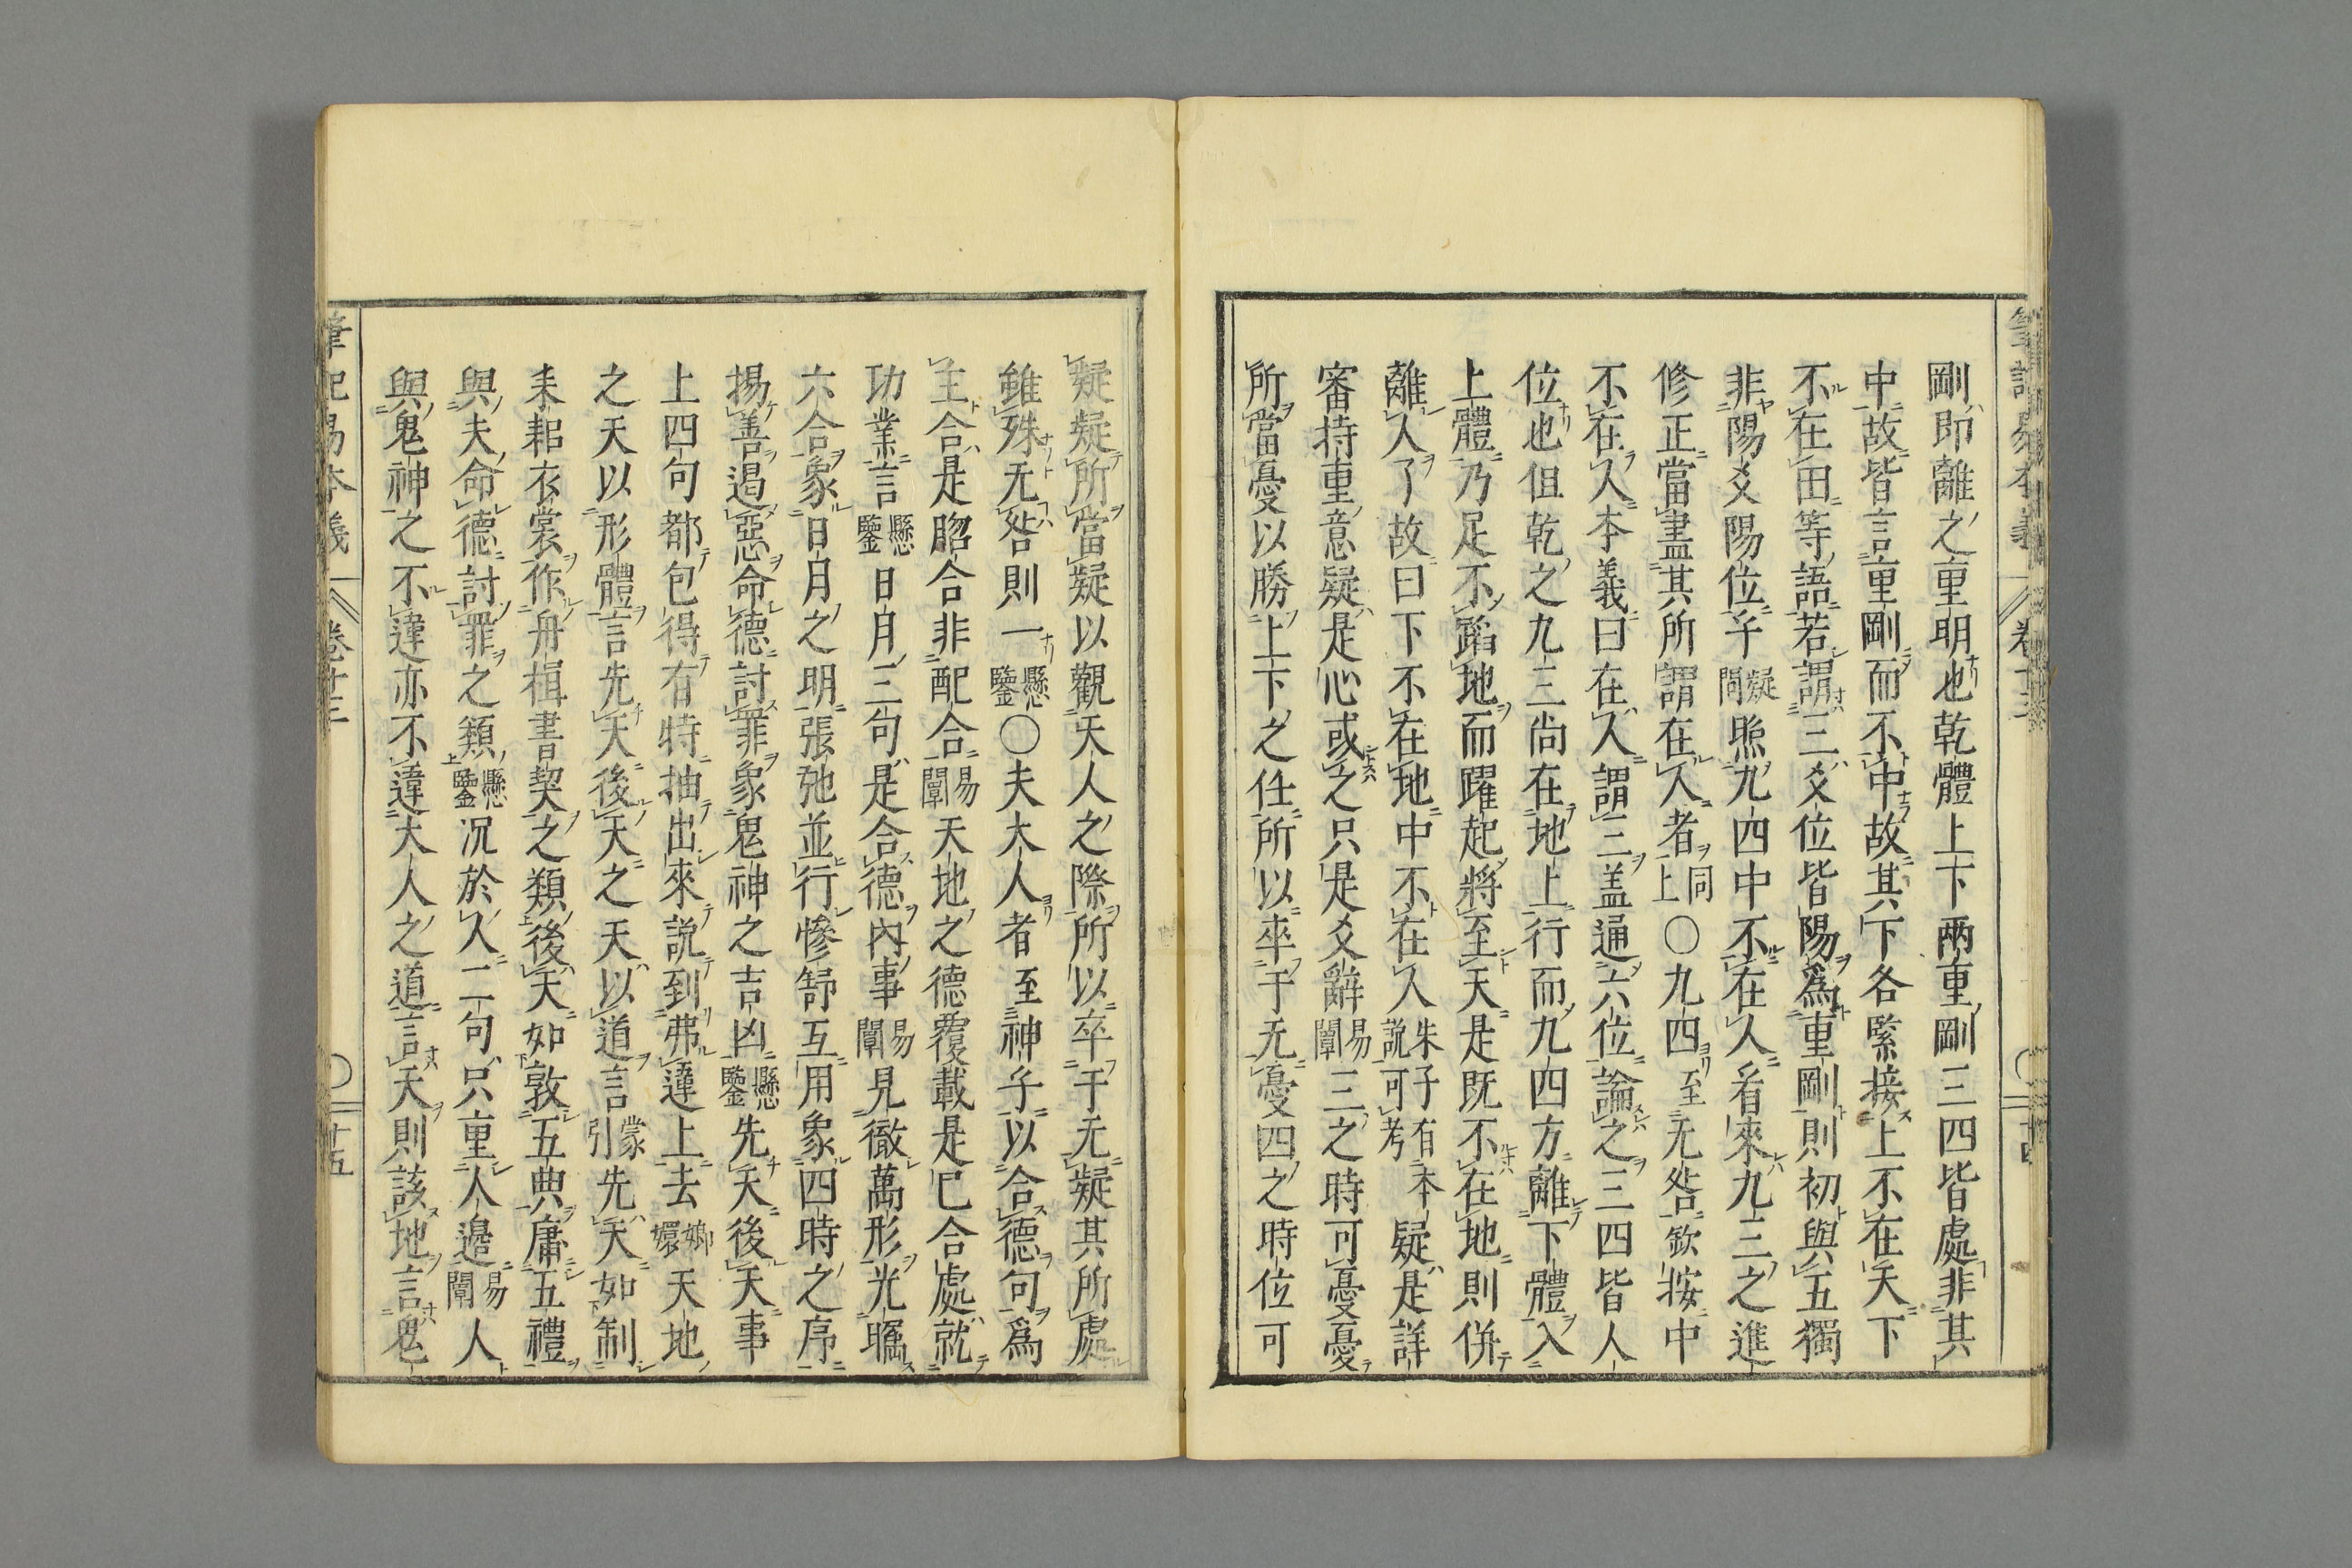 剛即離之重明也乾體上下兩重剛三四皆處非其
中故皆言重剛而不中故其下各緊接上不在天下
不在田等語若謂三爻位皆陽爲重剛則初與五獨
非陽爻陽位乎疑問㷖九四中不在人看來九三之進
修正當盡其所謂在人者同上〇九四至无咎欽按中
不在人本義曰在人謂三盖通六位論之三四皆人
位也但乾之九三尚在地上行而九四方離下體入
上體乃足不蹈地而躍起將至天是既不在地則併
離人了故曰下不在地中不在人朱子有本說可考疑是詳
審持重意疑是心或之只是爻辭易闡三之時可憂憂
所當憂以勝上下之任所以卒于无憂四之時位可
疑疑所當疑以觀天人之際所以卒于无疑其所處
雖殊无咎則一懸鑒〇夫大人者至神乎以合德句爲
主合是脗合非配合易闡天地之德覆載是已合處就
功業言懸鑒日月三句是合德內事易闡見徹萬形光矚
六合象日月之明張弛並行慘舒互用象四時之序
揚善遏惡命德討罪象鬼神之吉凶懸鑒先天後天事
上四句都包得有特抽出來說到弗違上去嫏嬛天地
之天以形體言先天後天之天以道言蒙引先天如制
耒耜衣裳作舟楫書契之類後天如敦五典庸五禮
與夫命德討罪之類懸鑒况於人二句只重人邊易闡人
與鬼神之不違亦不違大人之道言天則該地言鬼
筆記易本義 卷十三 十五